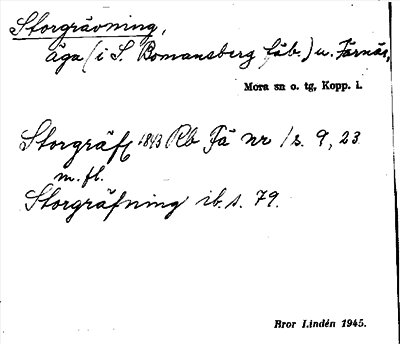 Storgrävning,
äga (i S. Bomansberg fäb.) u. Färnäs,
Mora sn o. tg, Kopp. l.
Storgräf 1843 Rb Fä nr 1 s. 9, 23
m. fl.
Storgräfning ib. s. 79.
Bror Lindén 1945.